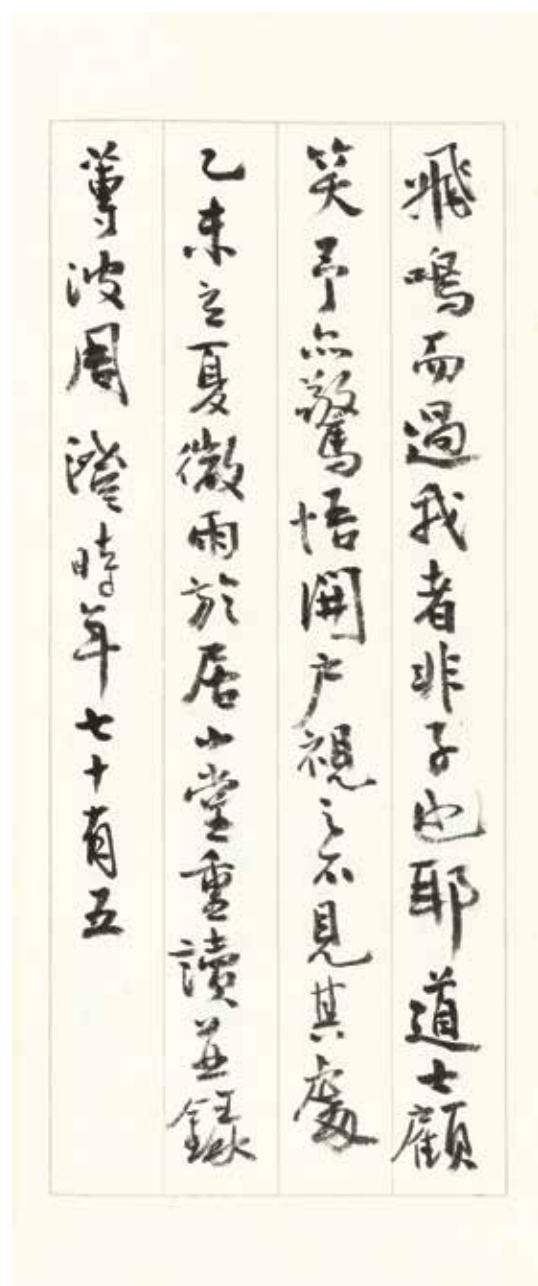 飛鳴而過我者非子也耶道士顧
笑予亦驚悟開户視之不見其處
乙未立夏微雨於居小堂重讀並錄
蓴波周澄時年七十有五